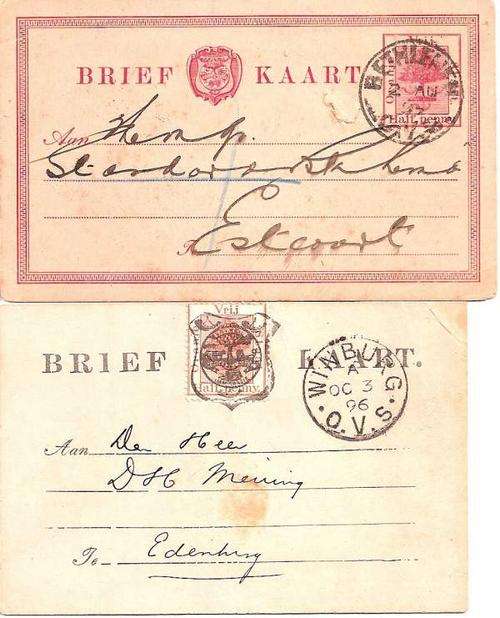 BRIEF KAART
BETHLEHEM
AU
O.V.S.
Half-penny
Aan
Estcourt
Vrij
BRIEF KAART.
Half-penny.
WINBURG
A
OC 3
96
O.V.S.
Aan Den Heer
D H Meiring
Te Edenburg